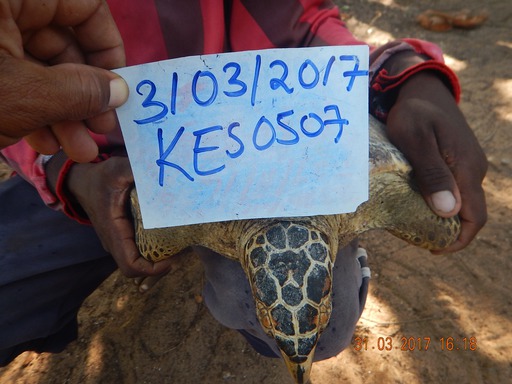 31/03/2017
KES0507
31.03.2017 16:18